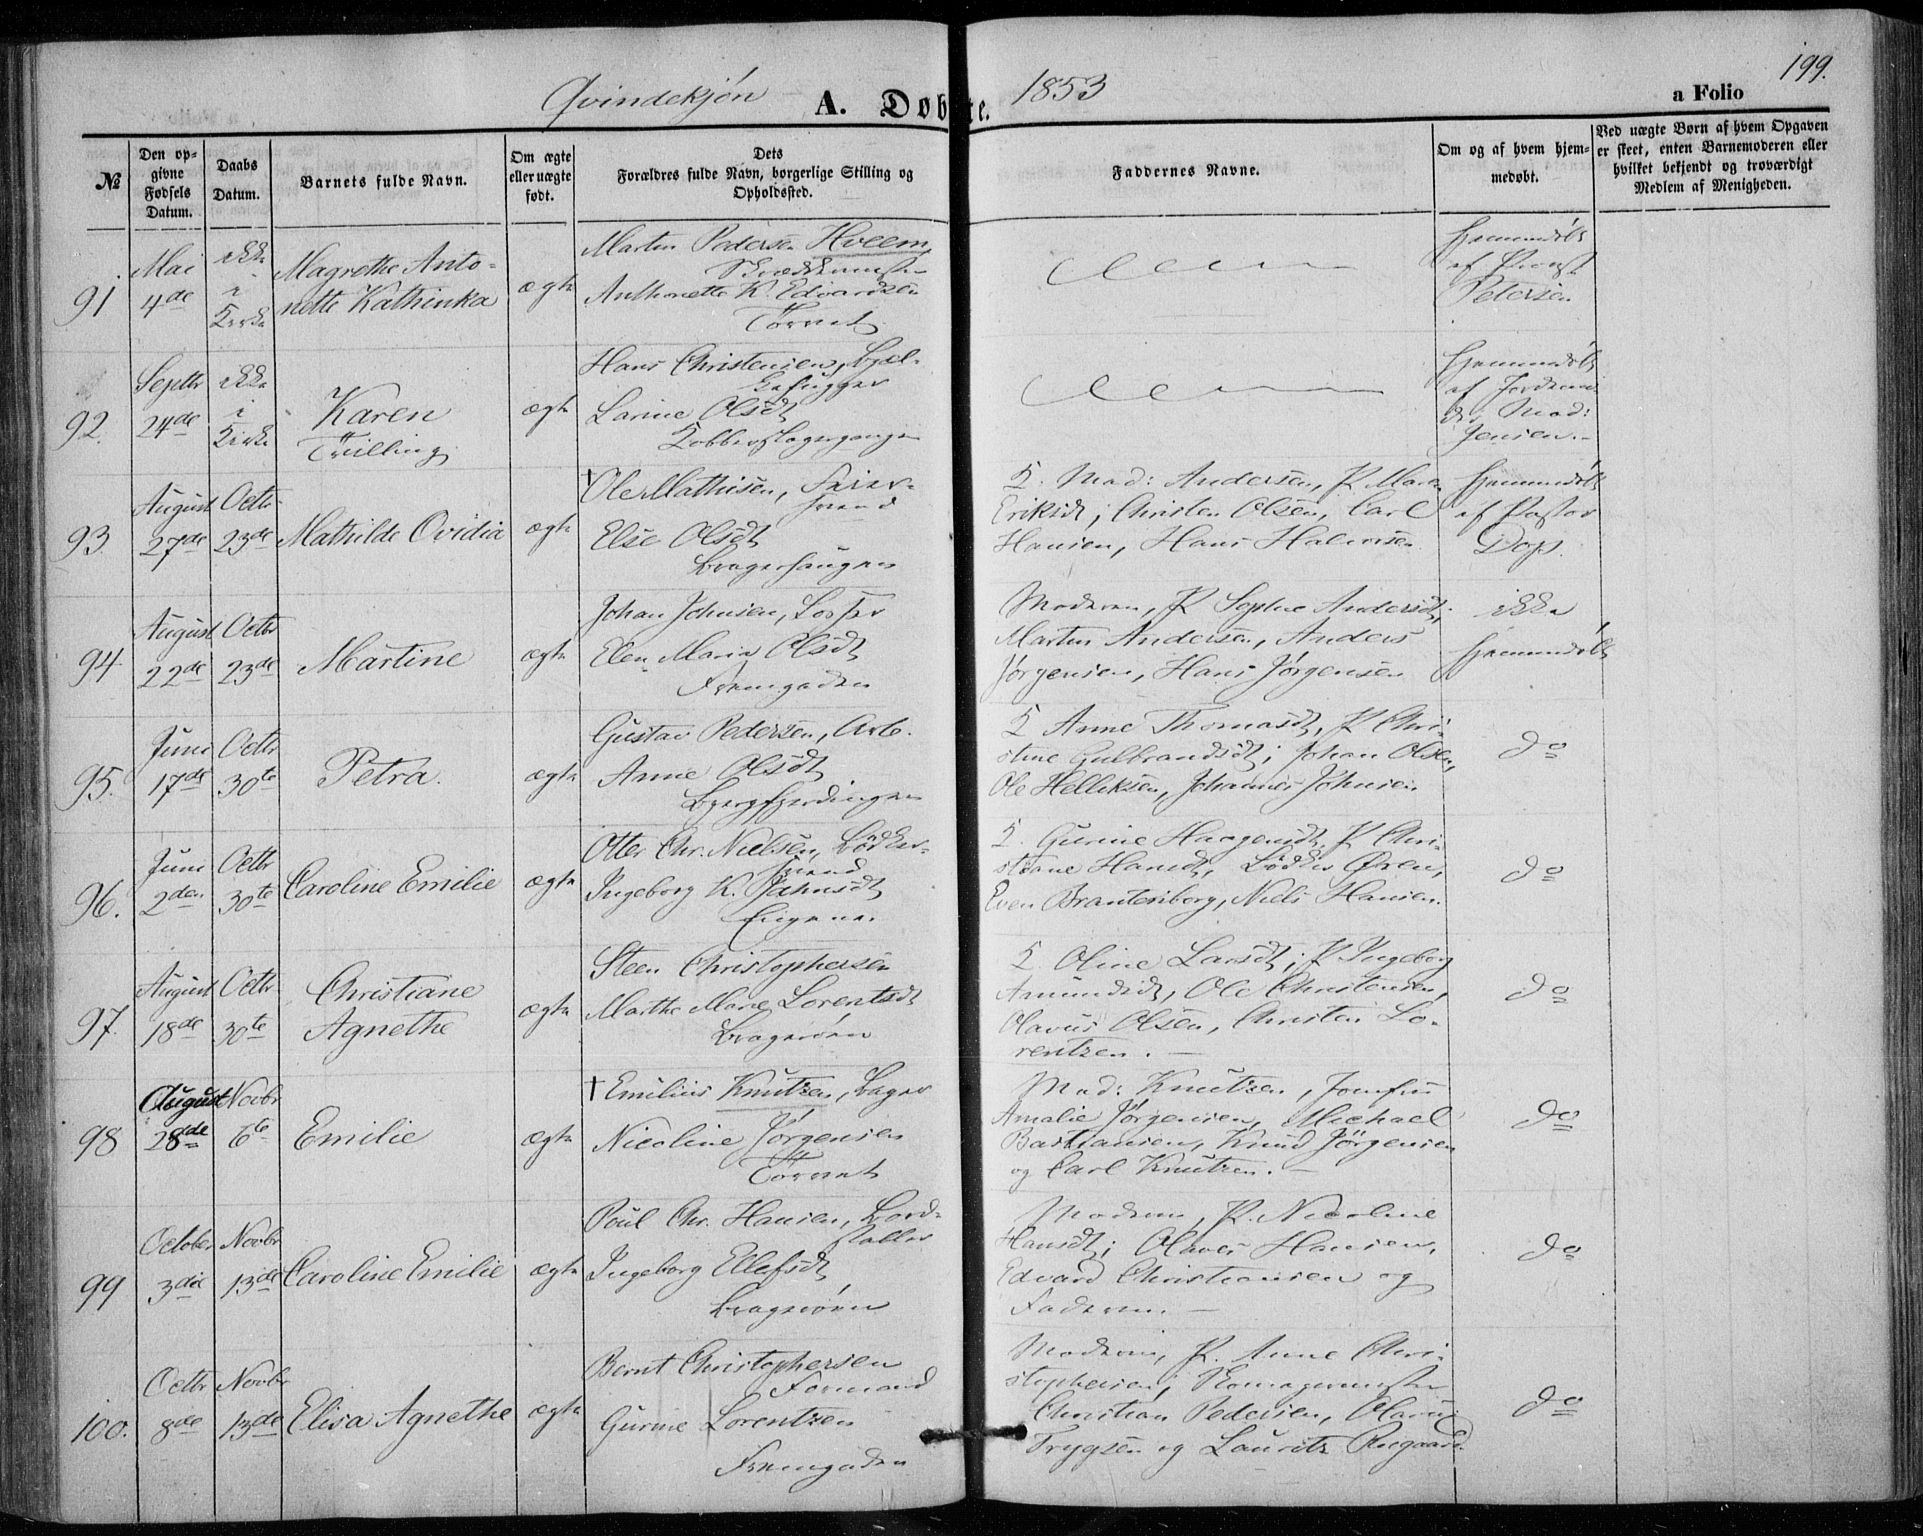 Qvindekjön A. Døbte. 1853
199.
a Folio
№
Den op-
givne
Fødsels
Datum.
Daabs
Datum.
Barnets fulde Navn.
Om ægte
eller uægte
født.
Dets
Forældres fulde Navn, borgerlige Stilling og
Opholdssted.
Faddernes Navne.
Om og af hvem hjem-
medøbt.
Ved uægte Børn af hvem Opgaven
er skeet, enten Barnemoderen eller
hvilket bekjendt og troværdigt
Medlem af Menigheden.
91
Mai
4de
ikke
i
Kirke
Magrethe Anto-
nette Kathinka
ægte
Martin Pedersen Hveem
Anthonette K. Edvardsen
Torvet
Hjemmedøbt
af Provst
Petersen
92.
Septbr
24de
ikke
i
Kirke
Karen
Trilling
ægte
Hans Christensen, Bjel-
kehugger
Larine Olsdt
Kobberslagergangen
Hjemmedøbt
af Jordemo
der Mad:
Jensen.
93.
August
27de
Octbr
23de
Mathilde Ovidia
ægte
† Ole Mathisen, Farver-
svend
Else Olsdt
Bragerhaugen
Q. Mad: Andersen, P. Maren
Eriksdt, Christen Olsen, Carl
Hansen, Hans Halvorsen
Hjemmedøbt
af Pastor
Dops.
94.
August
22de
Octbr
23de
Martine
ægte
Johan Johnsen, Losser
Elen Maria Olsdt
Strømgaden
Moderen, P. Sophie Andersdt,
Martin Andersen, Anders
Jørgensen, Hans Jørgensen
ikke
hjemmedøbt
95.
Juni
17de
Octbr
30te
Petra.
ægte
Gustav Pedersen, Arb.
Anne Olsdt
Bjergfjerdingen
Q Anne Thomasdt, P. Chri-
stine Gulbrandsdt; Johan Olsen,
Ole Helliksen, Johannes Johnsen
do
96.
Juni
2den
Octbr
30te
Caroline Emilie
ægte
Otter Chr. Nielsen, Bødker-
svend
Ingeborg K. Jahnsdt
Engene.
Q. Gurine Haagensdt, P. Chri-
stiane Hansdt, Bødker Øren,
Even Brantenborg, Niels Hansen.
do
97.
August
18de
Octbr
30te
Christiane
Agnethe
ægte
Steen Christophersen
Marthe Marie Lorentsdt
Bragerøen
Q. Oline Larsdt; P. Ingeborg
Amundsdt, Ole Christensen,
Olavus Olsen, Christen Lo-
rentzen.
do
98
August
28de
Novbr
6te
Emilie
ægte
† Emilius Knutzen, Bager
Nicoline Jörgensen
Torvet
Mad: Knutzen, Jomfru
Amalie Jørgensen, Michael
Bastiansen, Knud Jörgensen
og Carl Knutzen.
do
99
October
3die
Novbr
13de
Caroline Emilie
ægte
Poul Chr. Hansen, Bord-
stabler
Ingeborg Ellefsdt
Bragerøen
Moderen, P. Nicoline
Hansdt; Olaves Hansen,
Edvard Christiansen og
Faderen.
do
100.
Octbr
8de
Novbr
13de
Elisa Agnethe
ægte
Bernt Christophersen
Formand
Gurine Lorentzen
Strømgaden
Moderen, P. Anne Chri-
stophersen;
Christian Pedersen, Olavus
Trygsen og Lauritz Aagaard.
do